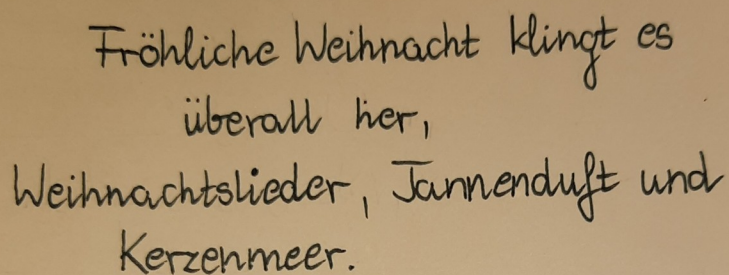 Fröhliche Weihnacht klingt es
überall her,
Weihnachtslieder, Tannenduft und
Kerzenmeer.